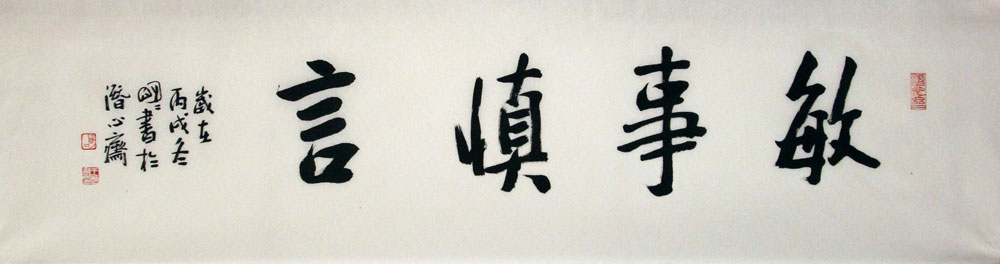 敏事慎言
歲在
丙戌冬
書於
潛心齋